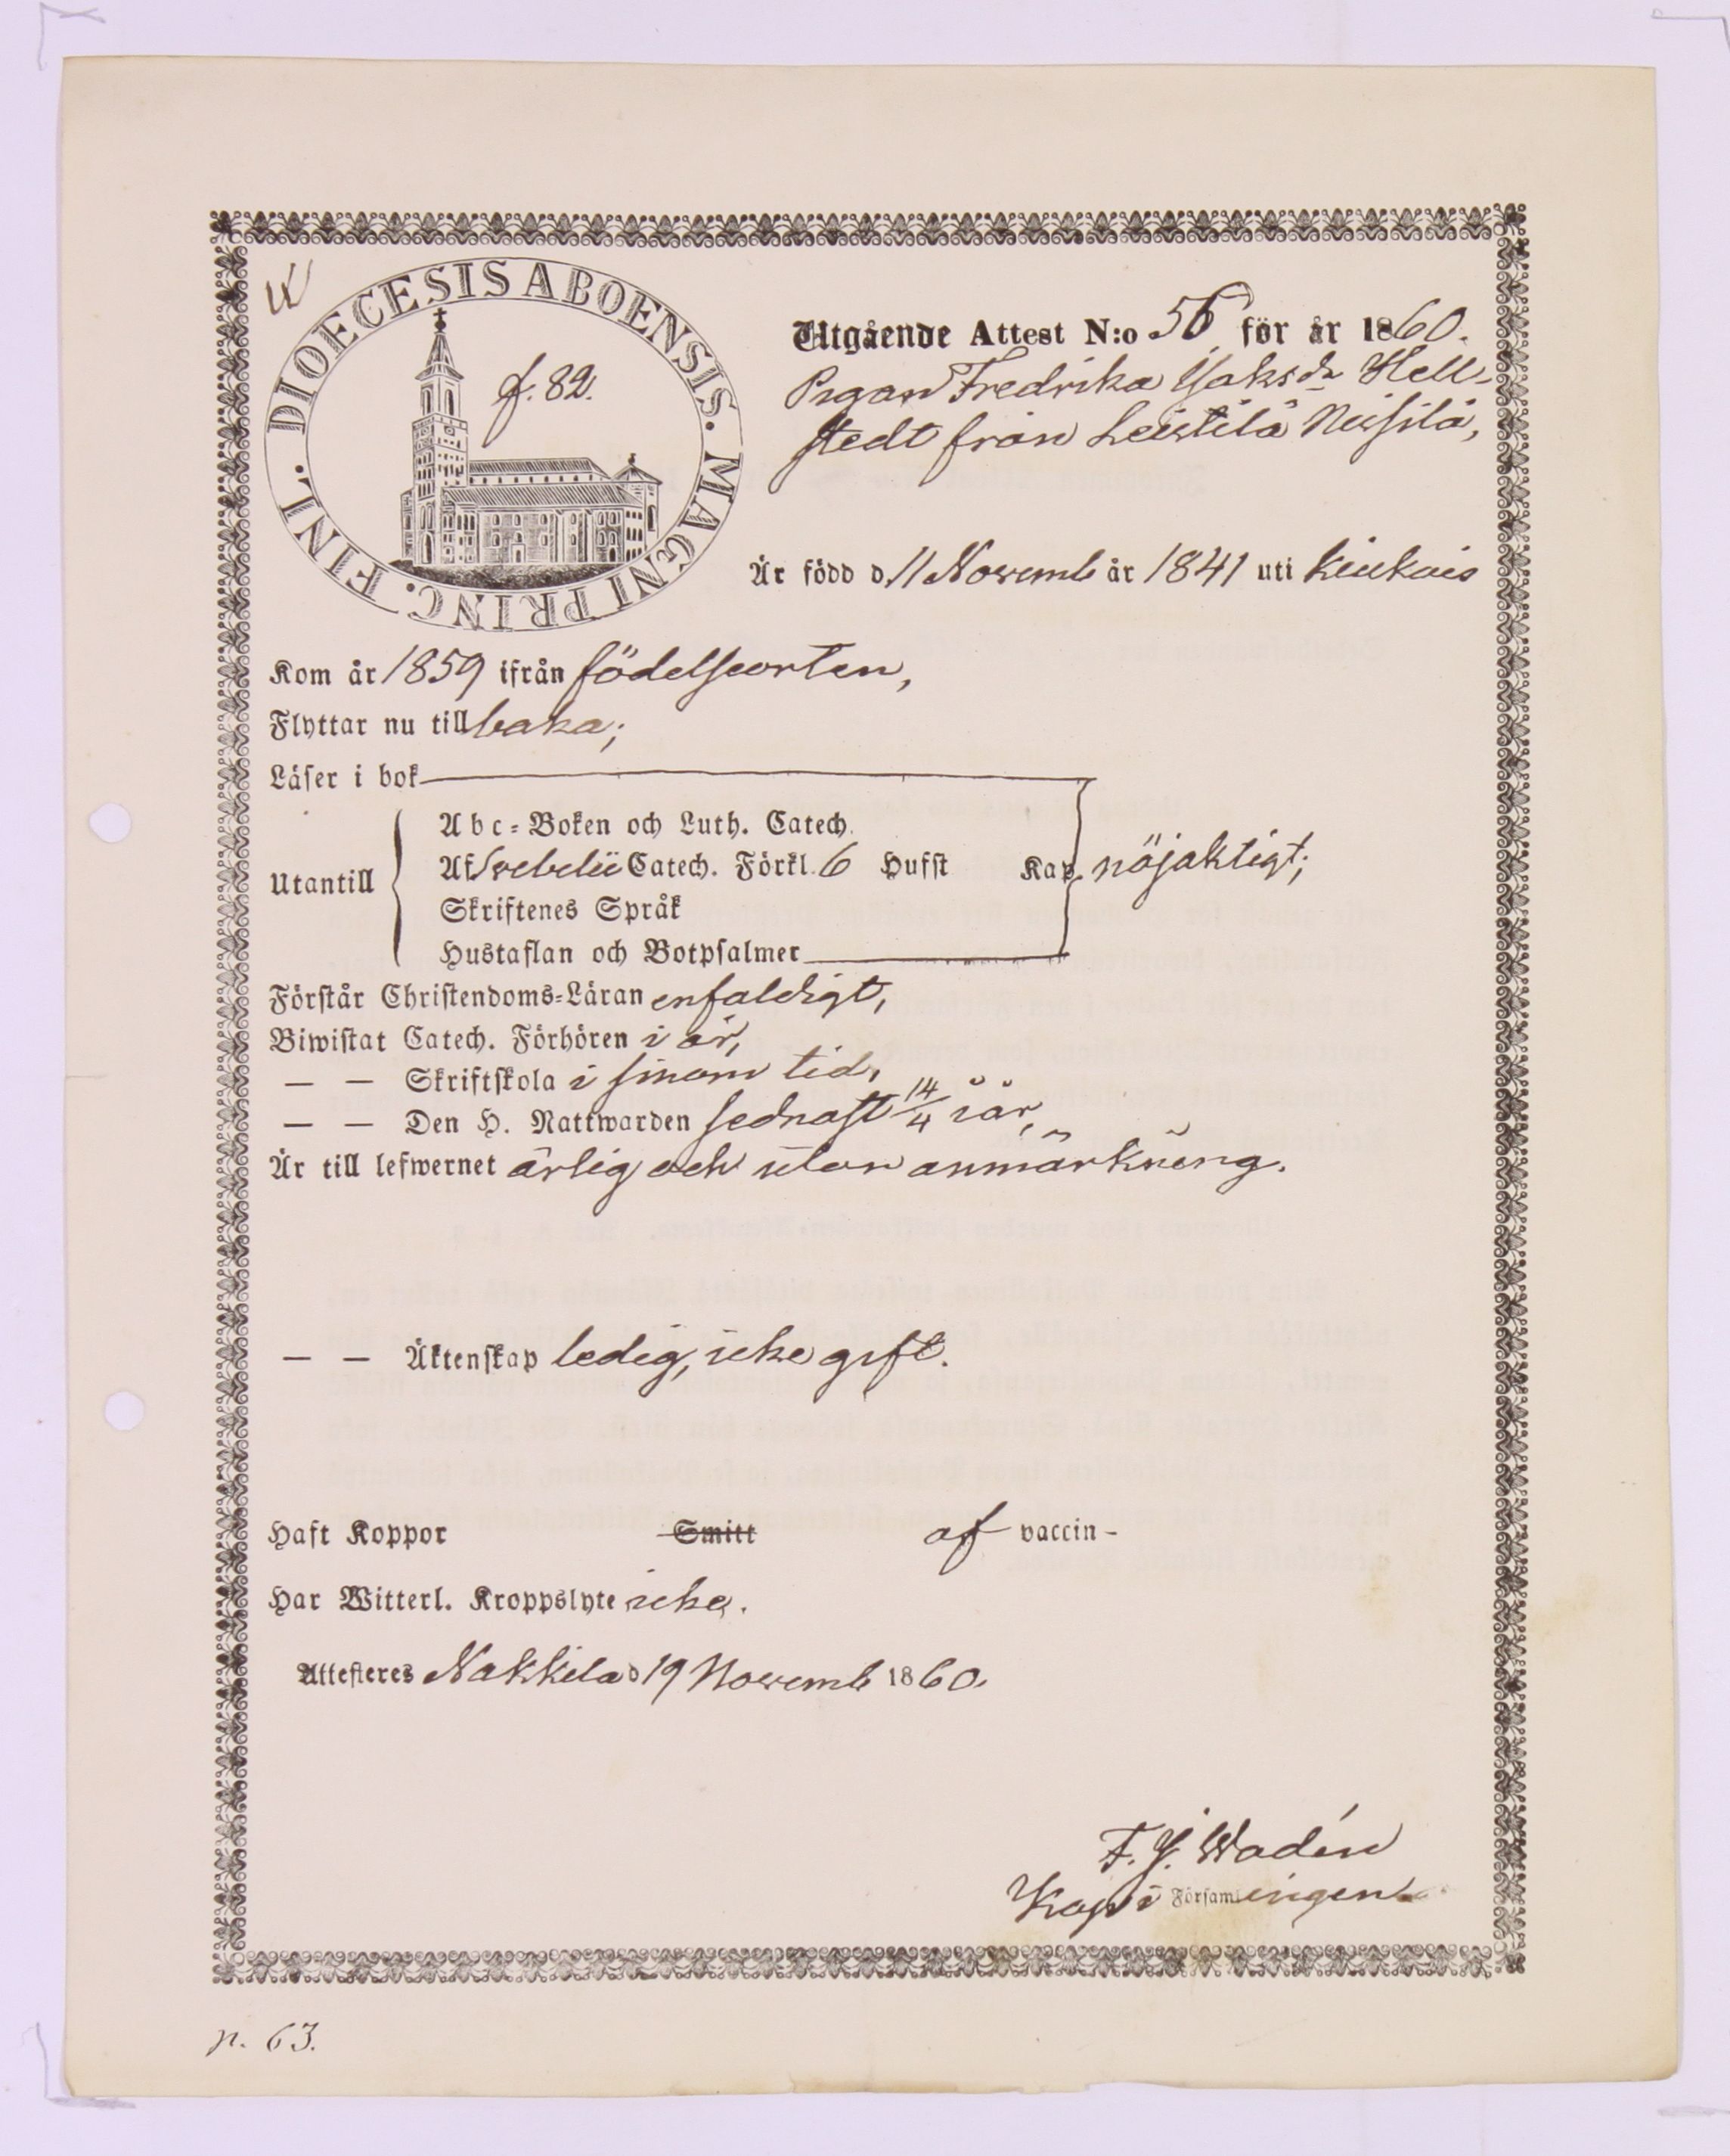 DIOECESIS ABOENSIS. MAGNI PRINC. FINL.
f. 82.
Utgående Attest N:o 56 för år 1860.
Pigan Fredrika Isaksdr Hell-
stedt från Leistilä Neisilä,
Är född d. 11 Novemb år 1841 uti Kiukais
Kom år 1859 ifrån födelseorten,
Flyttar nu tillbaka;
Läser i bok
Utantill
Abc-Boken och Luth. Catech.
Af Svebelii Catech. Förkl. 6 Hufst Kap. nöjaktigt;
Skriftenes Språk
Hustaflan och Botpsalmer
Förstår Christendoms-Läran enfaldigt,
Biwistat Catech. Förhören i år,
— — Skriftskola i sinom tid,
— — Den H. Nattwarden sednast 14/4 i år,
Är till lefwernet ärlig och utan anmärkning.
— — Äktenskap ledig, icke gift.
Haft Koppor Smitt af vaccin-
Har Witterl. Kroppslyte icke.
Attesteres Nakkila d 19 Novemb 1860.
F. J. Wadén
Kap. i Församlingen
p. 63.